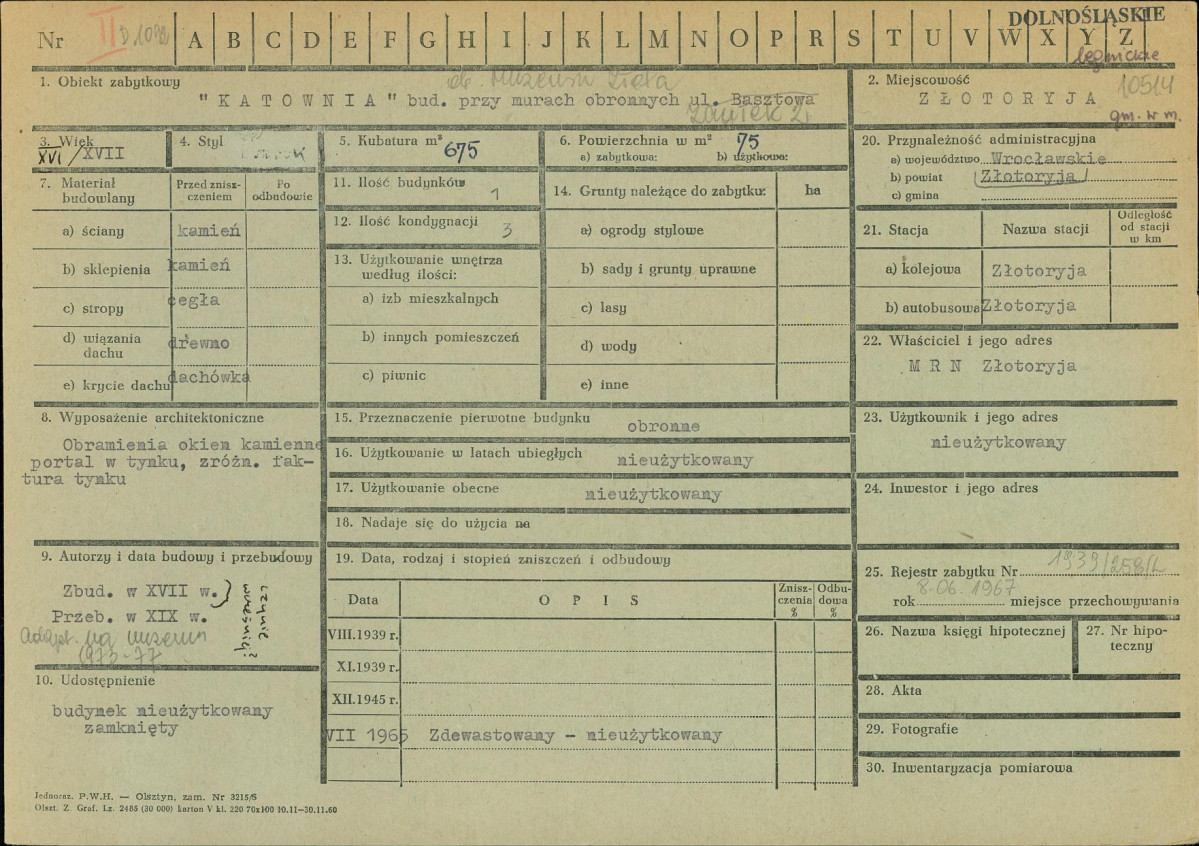 DOLNOŚLĄSKIE
Nr II D 1072 A B C D E F G H I J K L M N O P R S T U V W X Y Z
legnickie
1. Obiekt zabytkowy
ob. Muzeum Złota
"KATOWNIA" bud. przy murach obronnych ul. Basztowa
Zaułek 2
2. Miejscowość
10514
ZŁOTORYJA
gm. w m.
3. Wiek
XVI/XVII
4. Styl
5. Kubatura m³
675
6. Powierzchnia w m²
75
a) zabytkowa: b) użytkowa:
7. Materiał budowlany
Przed zniszczeniem
Po odbudowie
a) ściany kamień
b) sklepienia kamień
c) stropy cegła
d) wiązania dachu drewno
e) krycie dachu dachówka
8. Wyposażenie architektoniczne
Obramienia okien kamienne
portal w tynku, zróżn. fak-
tura tynku
9. Autorzy i data budowy i przebudowy
Zbud. w XVII w.
Przeb. w XIX w.
czy nie wcześniej?
Adapt. na muzeum
1973-77
10. Udostępnienie
budynek nieużytkowany
zamknięty
11. Ilość budynków 1
12. Ilość kondygnacji 3
13. Użytkowanie wnętrza
według ilości:
a) izb mieszkalnych
b) innych pomieszczeń
c) piwnic
14. Grunty należące do zabytku: ha
a) ogrody stylowe
b) sady i grunty uprawne
c) lasy
d) wody
e) inne
15. Przeznaczenie pierwotne budynku
obronne
16. Użytkowanie w latach ubiegłych nieużytkowany
17. Użytkowanie obecne nieużytkowany
18. Nadaje się do użycia na
19. Data, rodzaj i stopień zniszczeń i odbudowy
Data OPIS Zniszczenia % Odbudowa %
VIII.1939 r.
XI.1939 r.
XII.1945 r.
VII 1965 Zdewastowany - nieużytkowany
20. Przynależność administracyjna
a) województwo Wrocławskie
b) powiat Złotoryja
c) gmina
21. Stacja Nazwa stacji Odległość od stacji w km
a) kolejowa Złotoryja
b) autobusowa Złotoryja
22. Właściciel i jego adres
M R N Złotoryja
23. Użytkownik i jego adres
nieużytkowany
24. Inwestor i jego adres
25. Rejestr zabytku Nr 1939/258/L
8-06. 1967
rok miejsce przechowywania
26. Nazwa księgi hipotecznej
27. Nr hipo-
teczny
28. Akta
29. Fotografie
30. Inwentaryzacja pomiarowa
Jednoraz. P.W.H. — Olsztyn, zam. Nr 3215/S
Olszt. Z. Graf. Lz. 2485 (30 000) karton V kl. 220 70x100 10.11—30.11.60